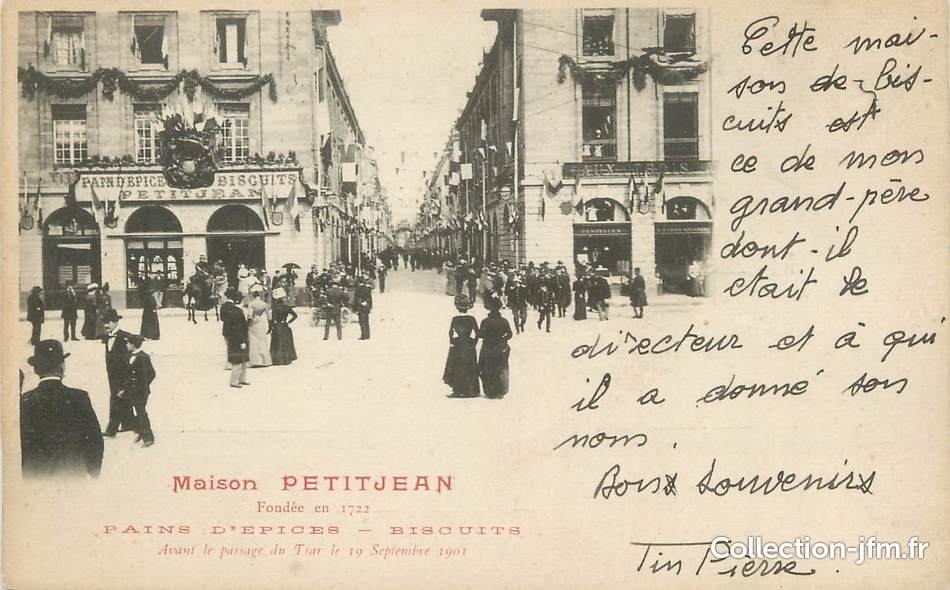 PAIN D'EPICES BISCUITS
PETITJEAN
Cette mai-
son de bis-
cuits est
ce de mon
grand-père
dont-il
était le
directeur et à qui
il a donné son
nom.
Bons Souvenirs
Tin Pierre.
Maison PETITJEAN
Fondée en 1722
PAINS D'EPICES - BISCUITS
Avant le passage du Tsar le 19 Septembre 1901
Collection-jfm.fr